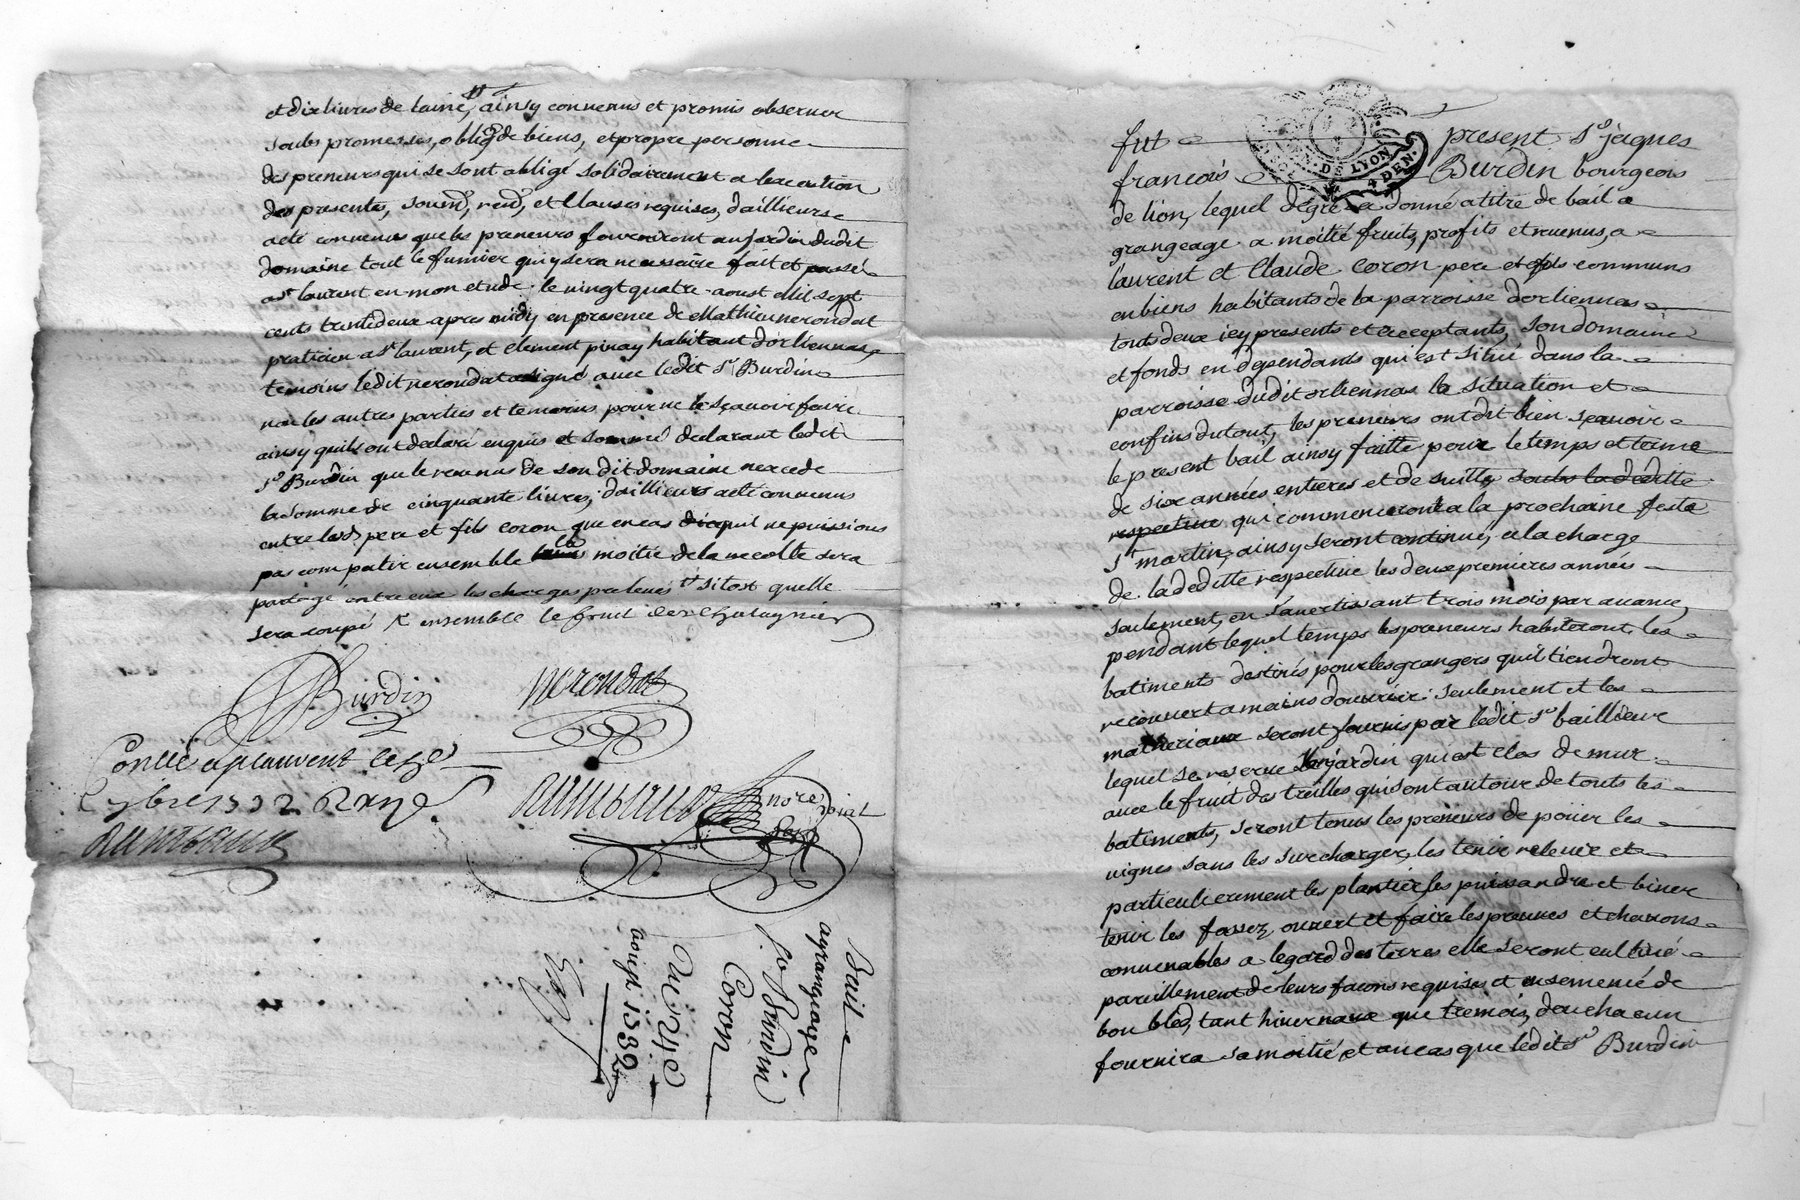 et dix livres de laine, ainsy convenus et promis observer
soubs promesses, oblig de biens, et propre personne
des preneurs qui se sont obligé solidairement a lexecution
des presentes, soumd, rend, et Clauses requises, dailleurs
a eté convenus que les preneurs fourniront au jardin dudit
domaine tout le fumier qui y sera necessaire fait et passé
a st laurent en mon etude le vingt quatre aoust Mil sept
cents trentedeux apres midy en presence de Mathieu nerondat
praticien a st laurent, et Clement pinay habitant dorliennas
temoins ledit nerondat a signé avec ledit Sr Burdin
non les autres parties et temoins pour ne le sçavoir faire
ainsy quils ont declaré enquis et sommé declarant ledit
Sr Burdin que le revenus de son dit domaine nexcede
la somme de cinquante livres, dailleurs a eté convenus
entre lesd. pere et fils coron que en cas quil ne puissions
pas compatir ensemble la moitié de la recolte sera
partagé entre eux les charges prelevés sitost quelle
sera coupé ensemble le fruit des chatagniers
Burdin nerondat
Conllé a st laurent le 7e
7bre 1732
nore roial
Bail a
a grangeage
Sr Burdin
Coron
aoust 1732
fut present Sr jaques
francois Burdin bourgeois
de lion, lequel degré a donné a titre de bail a
grangeage a moitié fruits, profits et revenus, a
laurent et Claude Coron pere et fils communs
en biens habitants de la parroisse dorliennas
touts deux icy presents et acceptants, son domaine
et fonds en dependants qui est situé dans la
parroisse dudit orliennas la situation et
confins du tout, les preneurs ont dit bien sçavoir
le present bail ainsy faitte pour le temps et terme
de six années entieres et de suitte soubs la deditte
respective qui commenceront a la prochaine feste
St martin, ainsy seront continué, a la charge
de la deditte respective les deux premieres années
seulement, en savertissant trois mois par avance,
pendant lequel temps les preneurs habiteront les
batiments destinés pour les grangers quil tiendront
recouvert a mains douvrier seulement et les
matheriaux seront fournis par ledit Sr bailleur
lequel se reserve le jardin qui est clos de mur
avec le fruit des treilles qui sont autour de touts les
batiments, seront tenus les preneurs de poüer les
vignes sans les surcharger, les tenir relever et
particulierement les plantier, les puissandre et biner
tenir les fossez ouvert et faire les preuves et chavons
convenables a legard des terres elle seront cultivé
pareillement de leurs facons requises et ensemencé de
bon bled, tant hivernaux que tremois, dou chacun
fournira sa moitié et au cas que ledit Sr Burdin